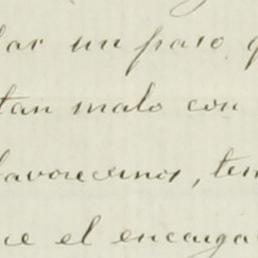 dar un paso, q
tan malo con
favorecernos, ten
ue el encarga